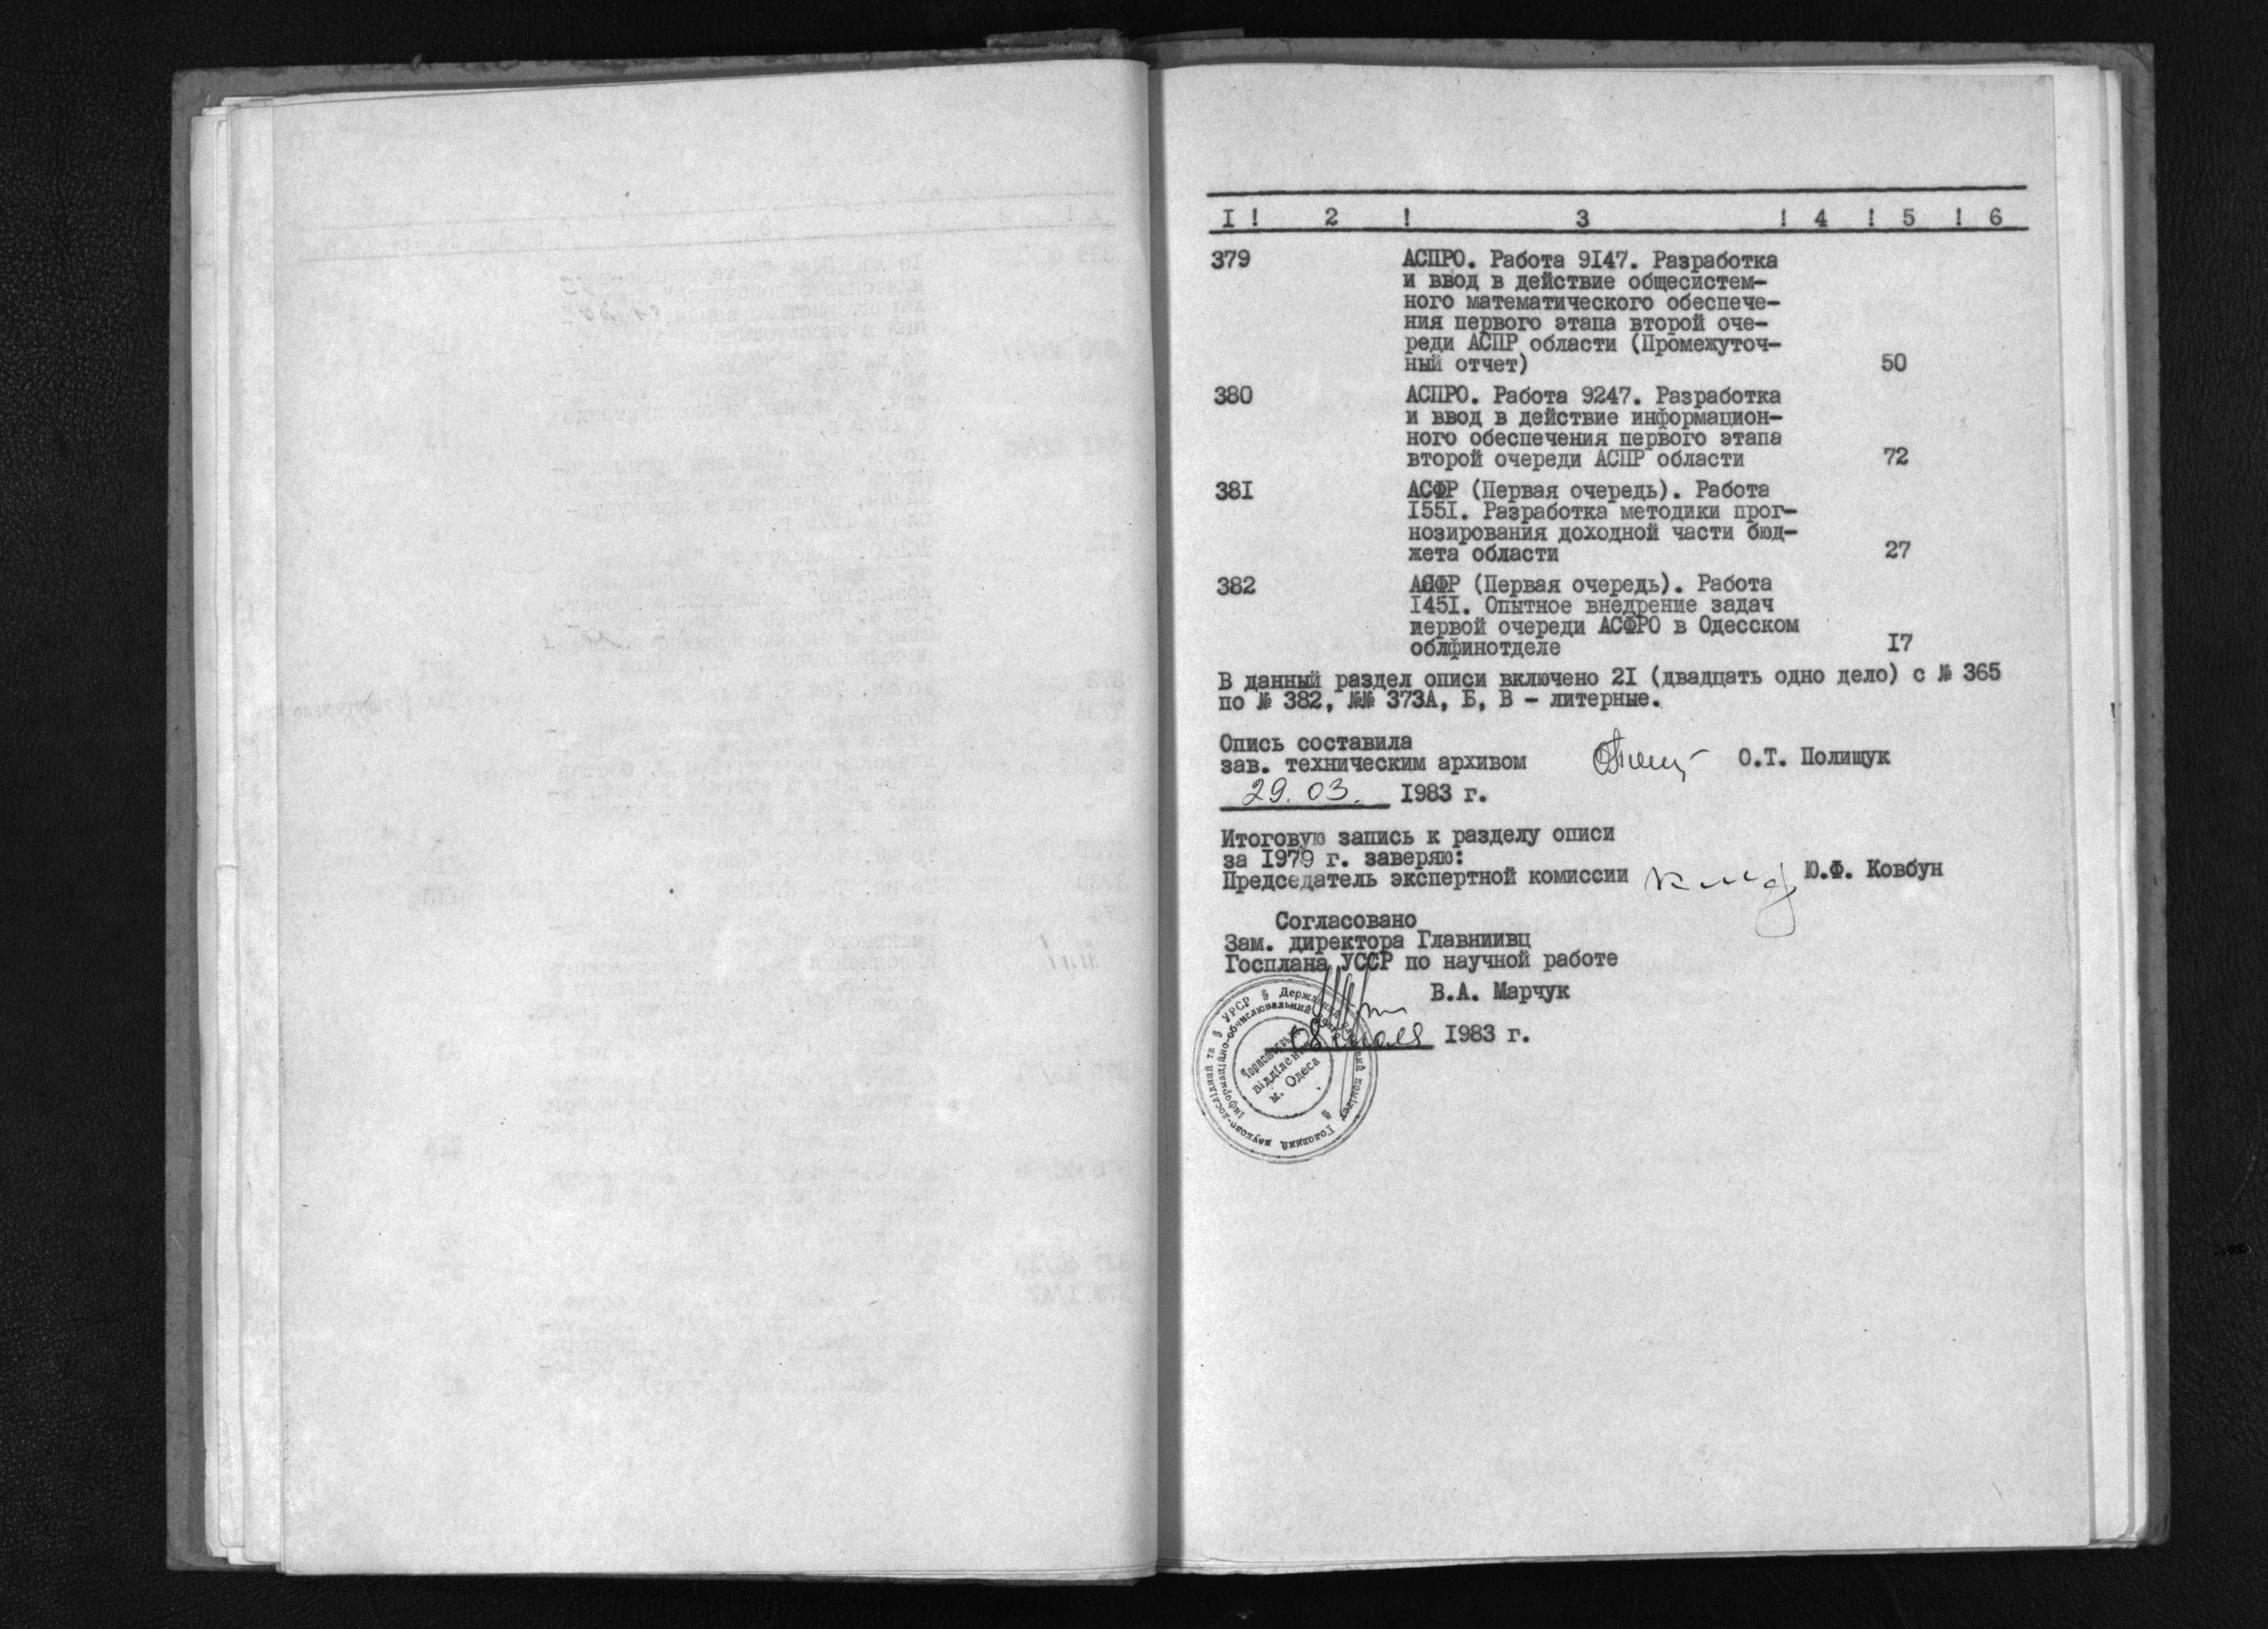 I ! 2 ! 3 ! 4 ! 5 ! 6
379 АСПРО. Работа 9I47. Разработка
и ввод в действие общесистем-
ного математического обеспече-
ния первого этапа второй оче-
реди АСПР области (Промежуточ-
ный отчет) 50
380 АСПРО. Работа 9247. Разработка
и ввод в действие информацион-
ного обеспечения первого этапа
второй очереди АСПР области 72
38I АСФР (Первая очередь). Работа
I55I. Разработка методики прог-
нозирования доходной части бюд-
жета области 27
382 АСФР (Первая очередь). Работа
I45I. Опытное внедрение задач
первой очереди АСФРО в Одесском
облфинотделе I7
В данный раздел описи включено 2I (двадцать одно дело) с № 365
по № 382, №№ 373А, Б, В - литерные.
Опись составила
зав. техническим архивом О.Т. Полищук
29.03. I983 г.
Итоговую запись к разделу описи
за I979 г. заверяю:
Председатель экспертной комиссии Ю.Ф. Ковбун
Согласовано
Зам. директора Главниивц
Госплана УССР по научной работе
В.А. Марчук
I983 г.
УРСР § Головний науково-дослідний та §
інформаційно-обчислювальний
відділення
м. Одеса